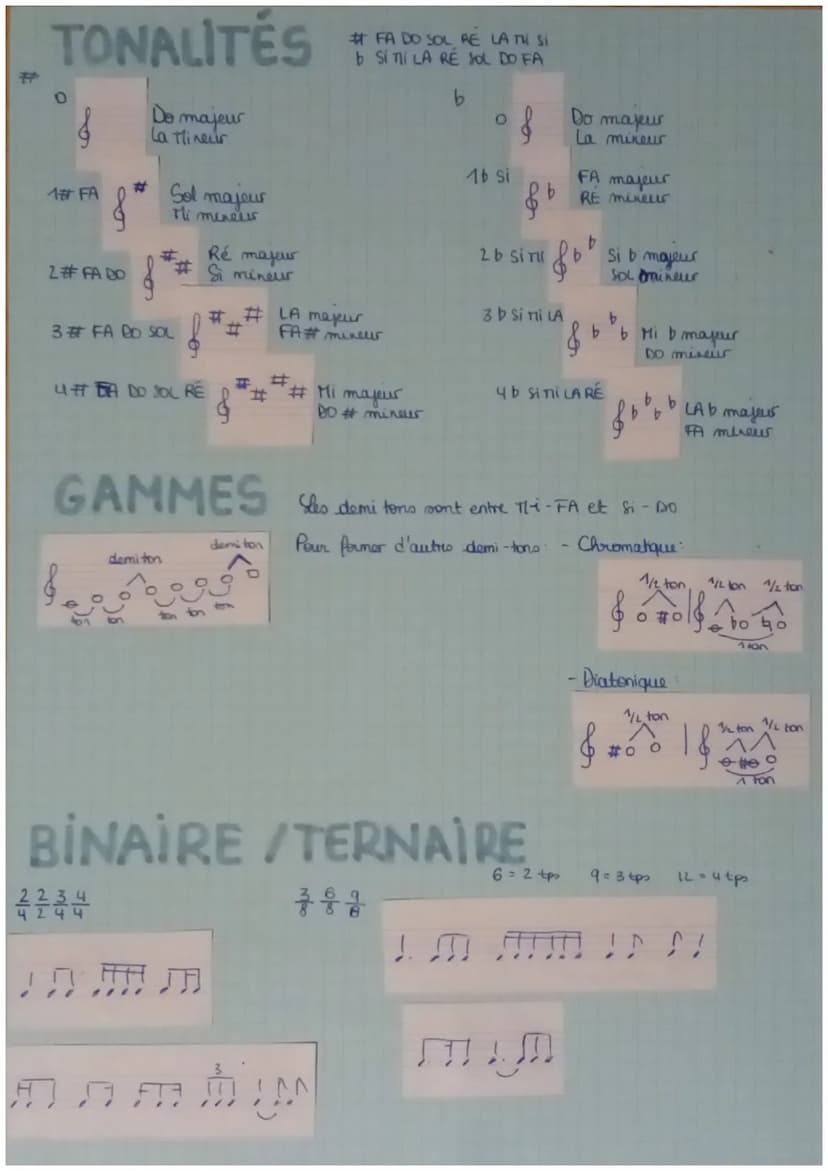 TONALITÉS
# FA DO SOL RÉ LA MI SI
b SI MI LA RÉ SOL DO FA
#
0
Do majeur
La Mineur
1# FA
#
Sol majeur
Mi mineur
2# FA DO
##
Ré majeur
Si mineur
3# FA DO SOL
###
LA majeur
FA# mineur
4# FA DO SOL RÉ
####
Mi majeur
DO # mineur
b
0
Do majeur
La mineur
1b SI
b
FA majeur
RÉ mineur
2b SI MI
bb
Si b majeur
SOL mineur
3b SI MI LA
bbb
Mi b majeur
DO mineur
4b SI MI LA RÉ
bbbb
LA b majeur
FA mineur
GAMMES
Les demi tons sont entre Mi-FA et Si-DO
demi ton
demi ton
ton ton ton ton ton
Pour former d'autre demi-tons: - Chromatique:
1/2 ton 1/2 ton 1/2 ton
1 ton
- Diatonique:
1/2 ton 1/2 ton 1/2 ton
1 ton
BINAIRE / TERNAIRE
6 = 2 tps 9 = 3 tps 12 = 4 tps
2/4 2/2 3/4 4/4
3/8 6/8 9/8
3